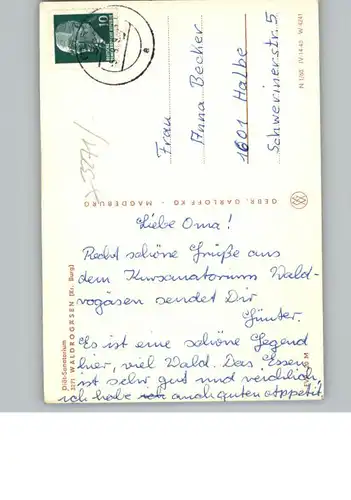 10
Frau
Anna Becker
1601 Halbe
Schwerinerstr. 5
N 1/60 IV-14-43 W 4241
GEBR. GARLOFF KG - MAGDEBURG
Diät-Sanatorium
3271 WALDROGÄSEN (Kr. Burg)
Liebe Oma!
Recht schöne Grüße aus
dem Kursanatorium Wald-
rogäsen sendet Dir
Günter.
Es ist eine schöne Gegend
hier, viel Wald. Das Essen
ist sehr gut und reichlich,
ich habe ich auch guten Appetit,